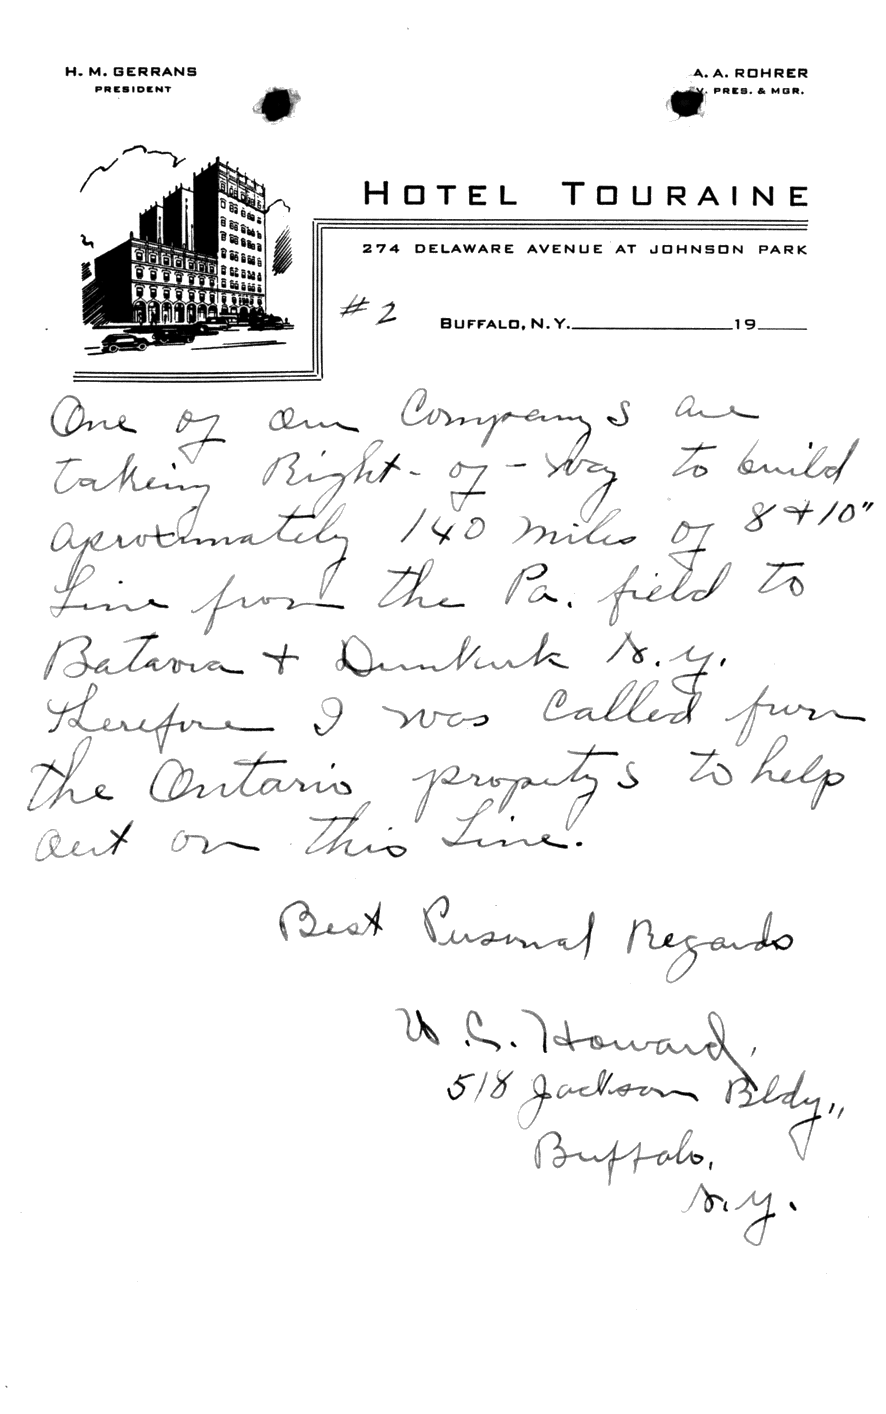 H. M. GERRANS
PRESIDENT
A. A. ROHRER
V. PRES. & MGR.
HOTEL TOURAINE
274 DELAWARE AVENUE AT JOHNSON PARK
#2
BUFFALO, N.Y. 19
One of our Companys are
taking Right-of-way to build
aproximately 140 miles of 8 + 10"
Line from the Pa. field to
Batavia + Dunkirk N.Y.
Therefore I was called from
the Ontario propertys to help
out on this Line.
Best Personal Regards
W. C. Howard,
518 Jackson Bldg,,
Buffalo,
N.Y.